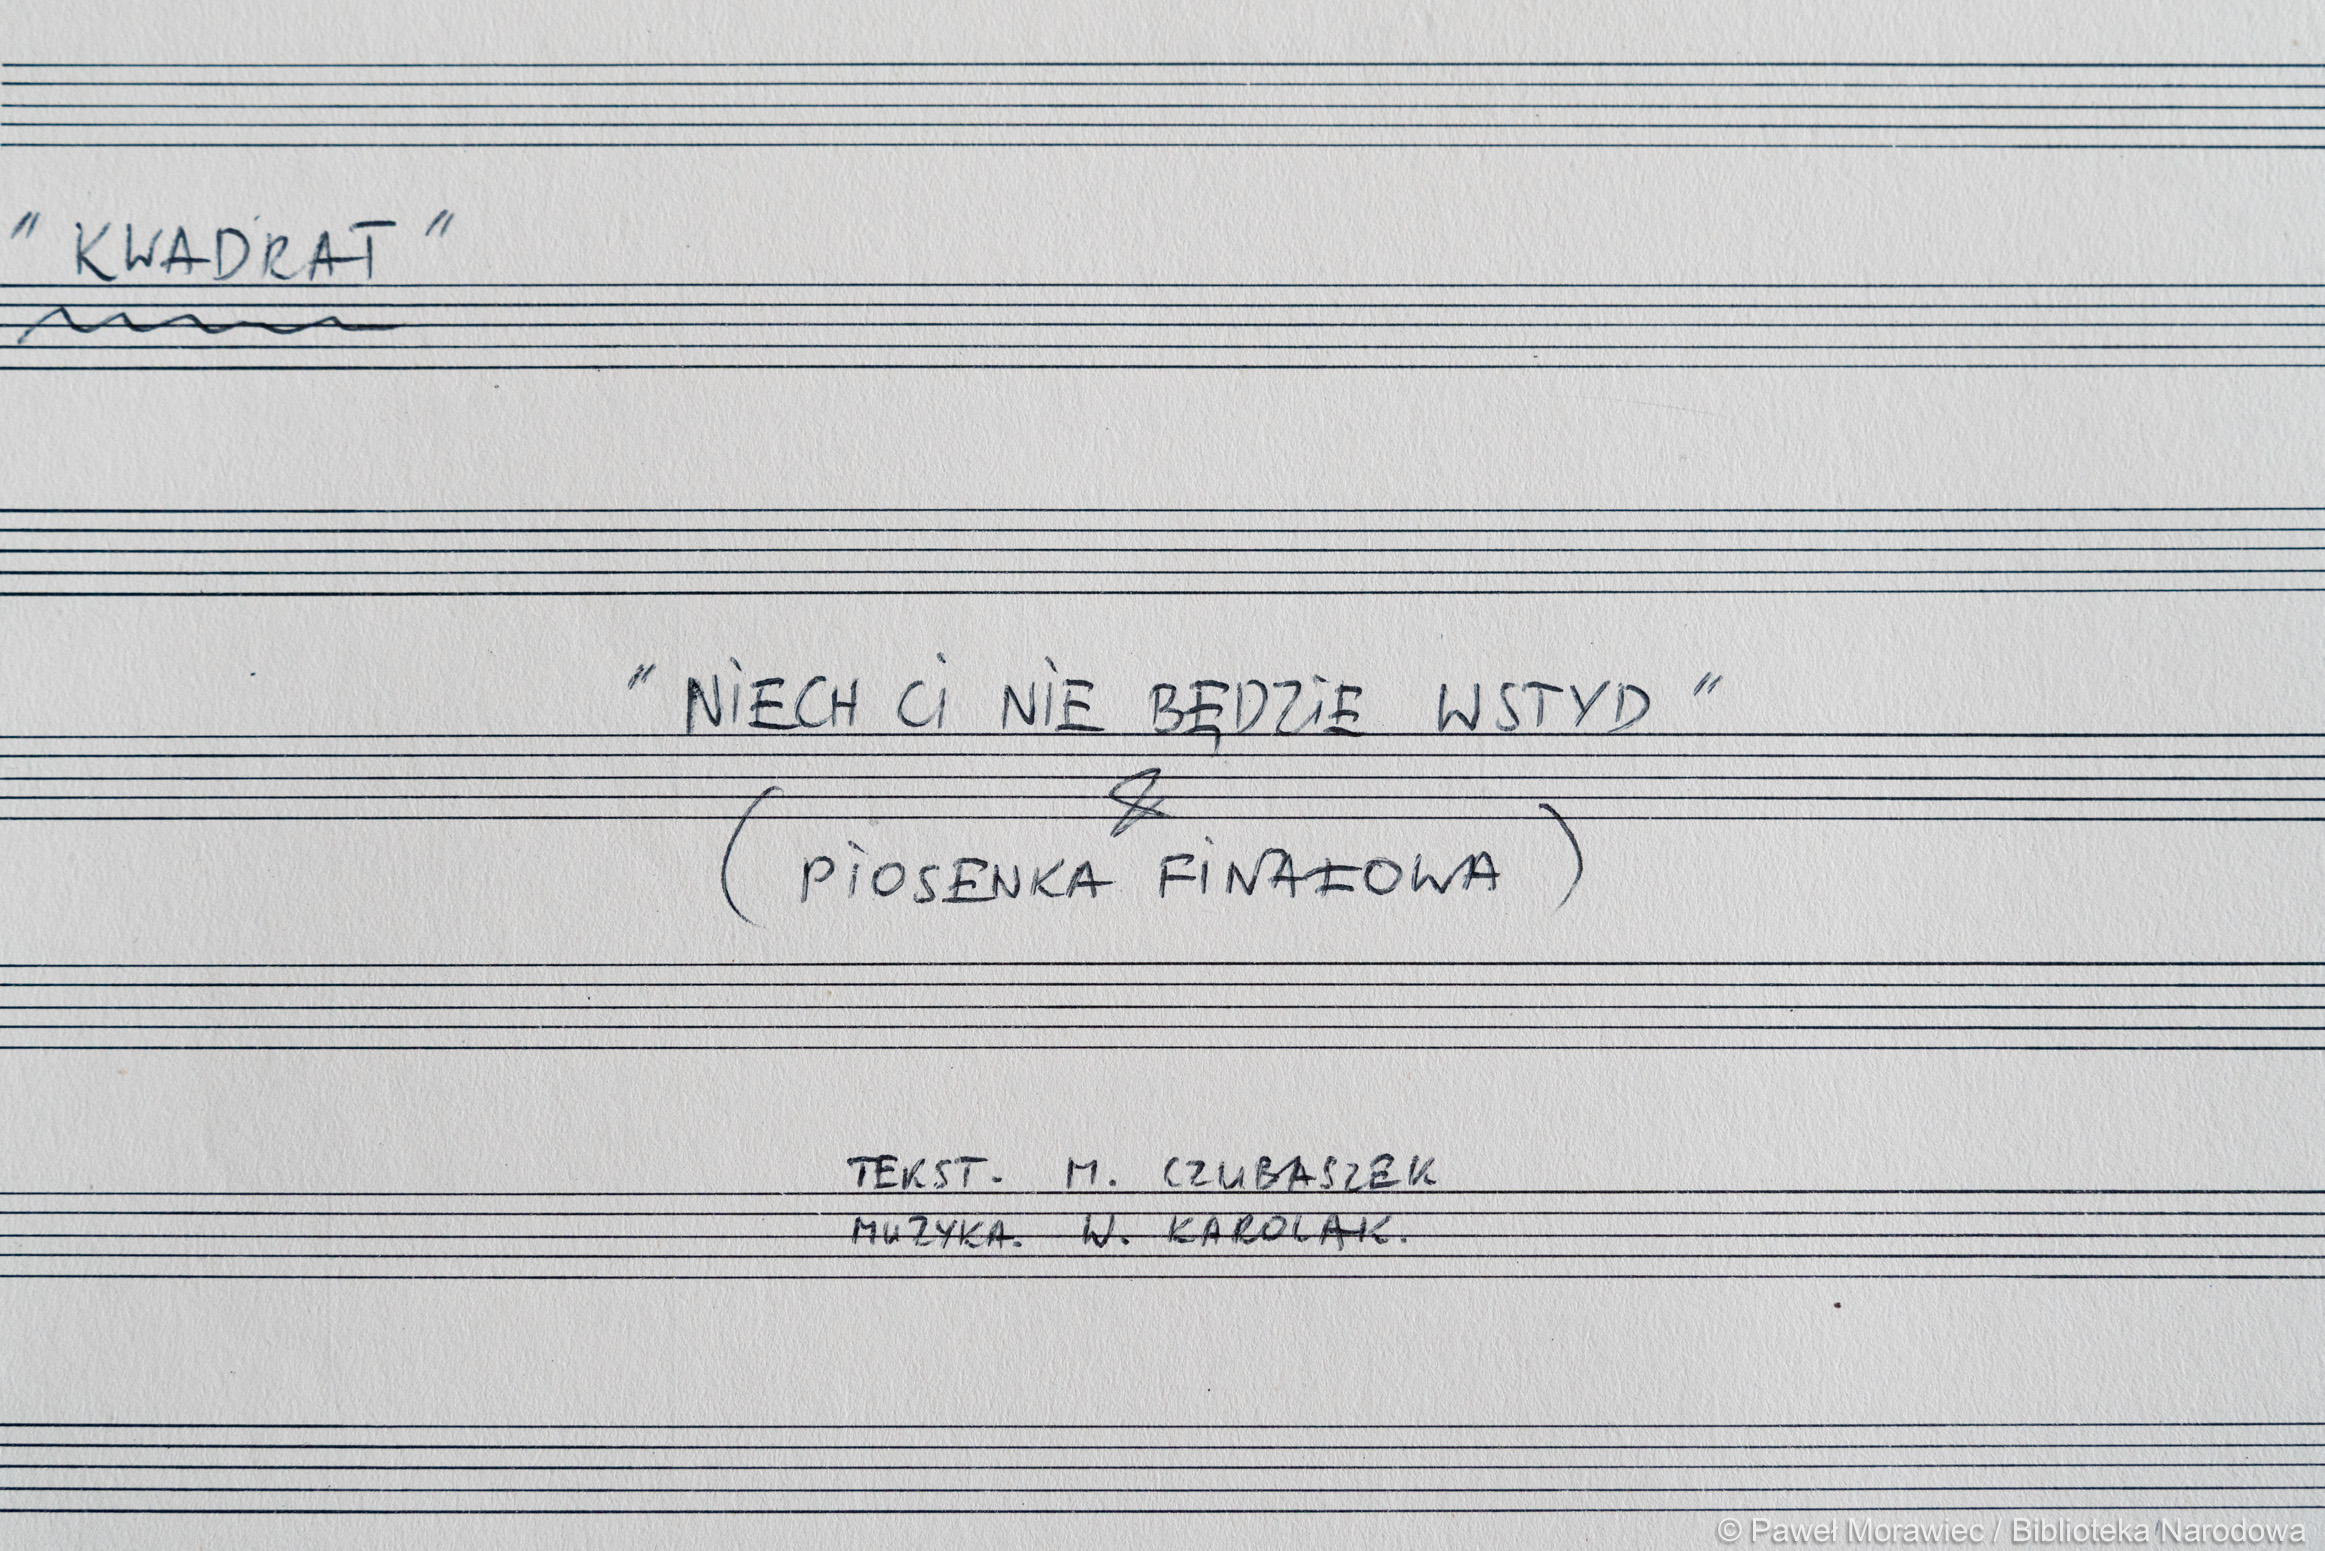 "KWADRAT"
"NIECH CI NIE BĘDZIE WSTYD"
&
(PIOSENKA FINAŁOWA)
TEKST. M. CZUBASZEK
MUZYKA. W. KAROLAK.
© Paweł Morawiec / Biblioteka Narodowa